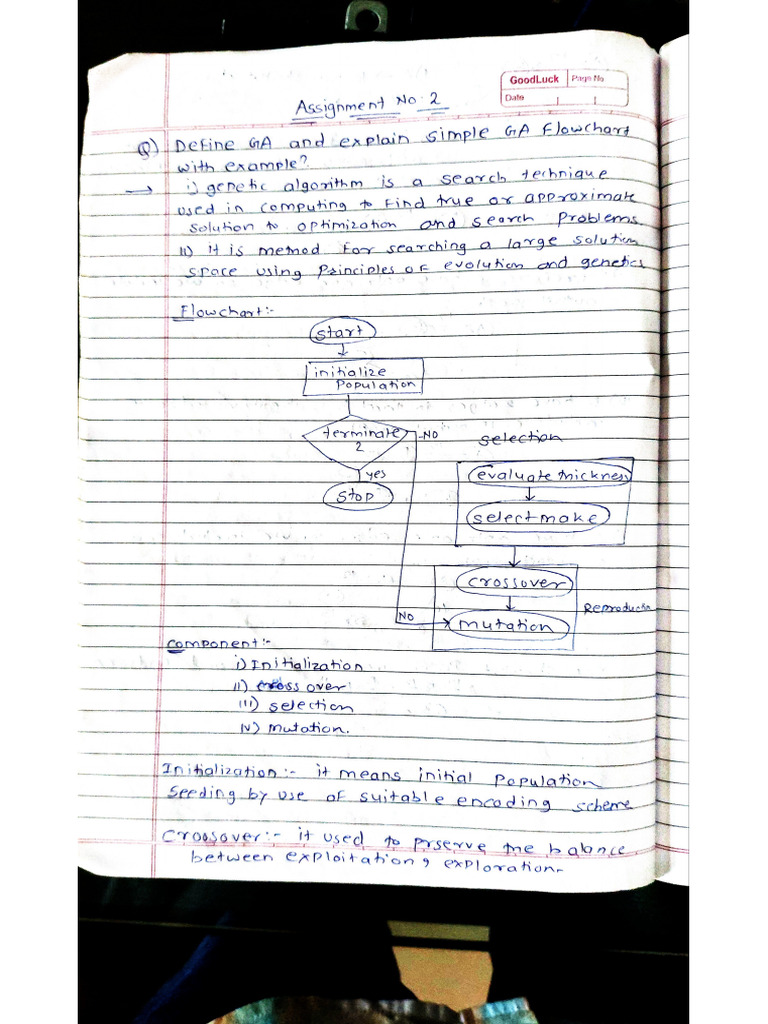 GoodLuck Page No
Date
Assignment No: 2
Q) Define GA and explain simple GA Flowchart
with example?
→ i) genetic algorithm is a search technique
used in computing to find true or approximate
solution to optimization and search problems.
II) it is metnod for searching a large solution
space using Principles of evolution and genetics
Flowchart:-
start
initialize
population
terminate
2
NO
yes
stop
selection
evaluate thickness
select make
crossover
mutation
Reproductn
NO
component:-
i) Initialization
II) cross over
III) selection
IV) mutation.
Initialization:- it means initial population
seeding by use of suitable encoding scheme
Croosover:- it used to prserve the balance
between exploitation, exploration.